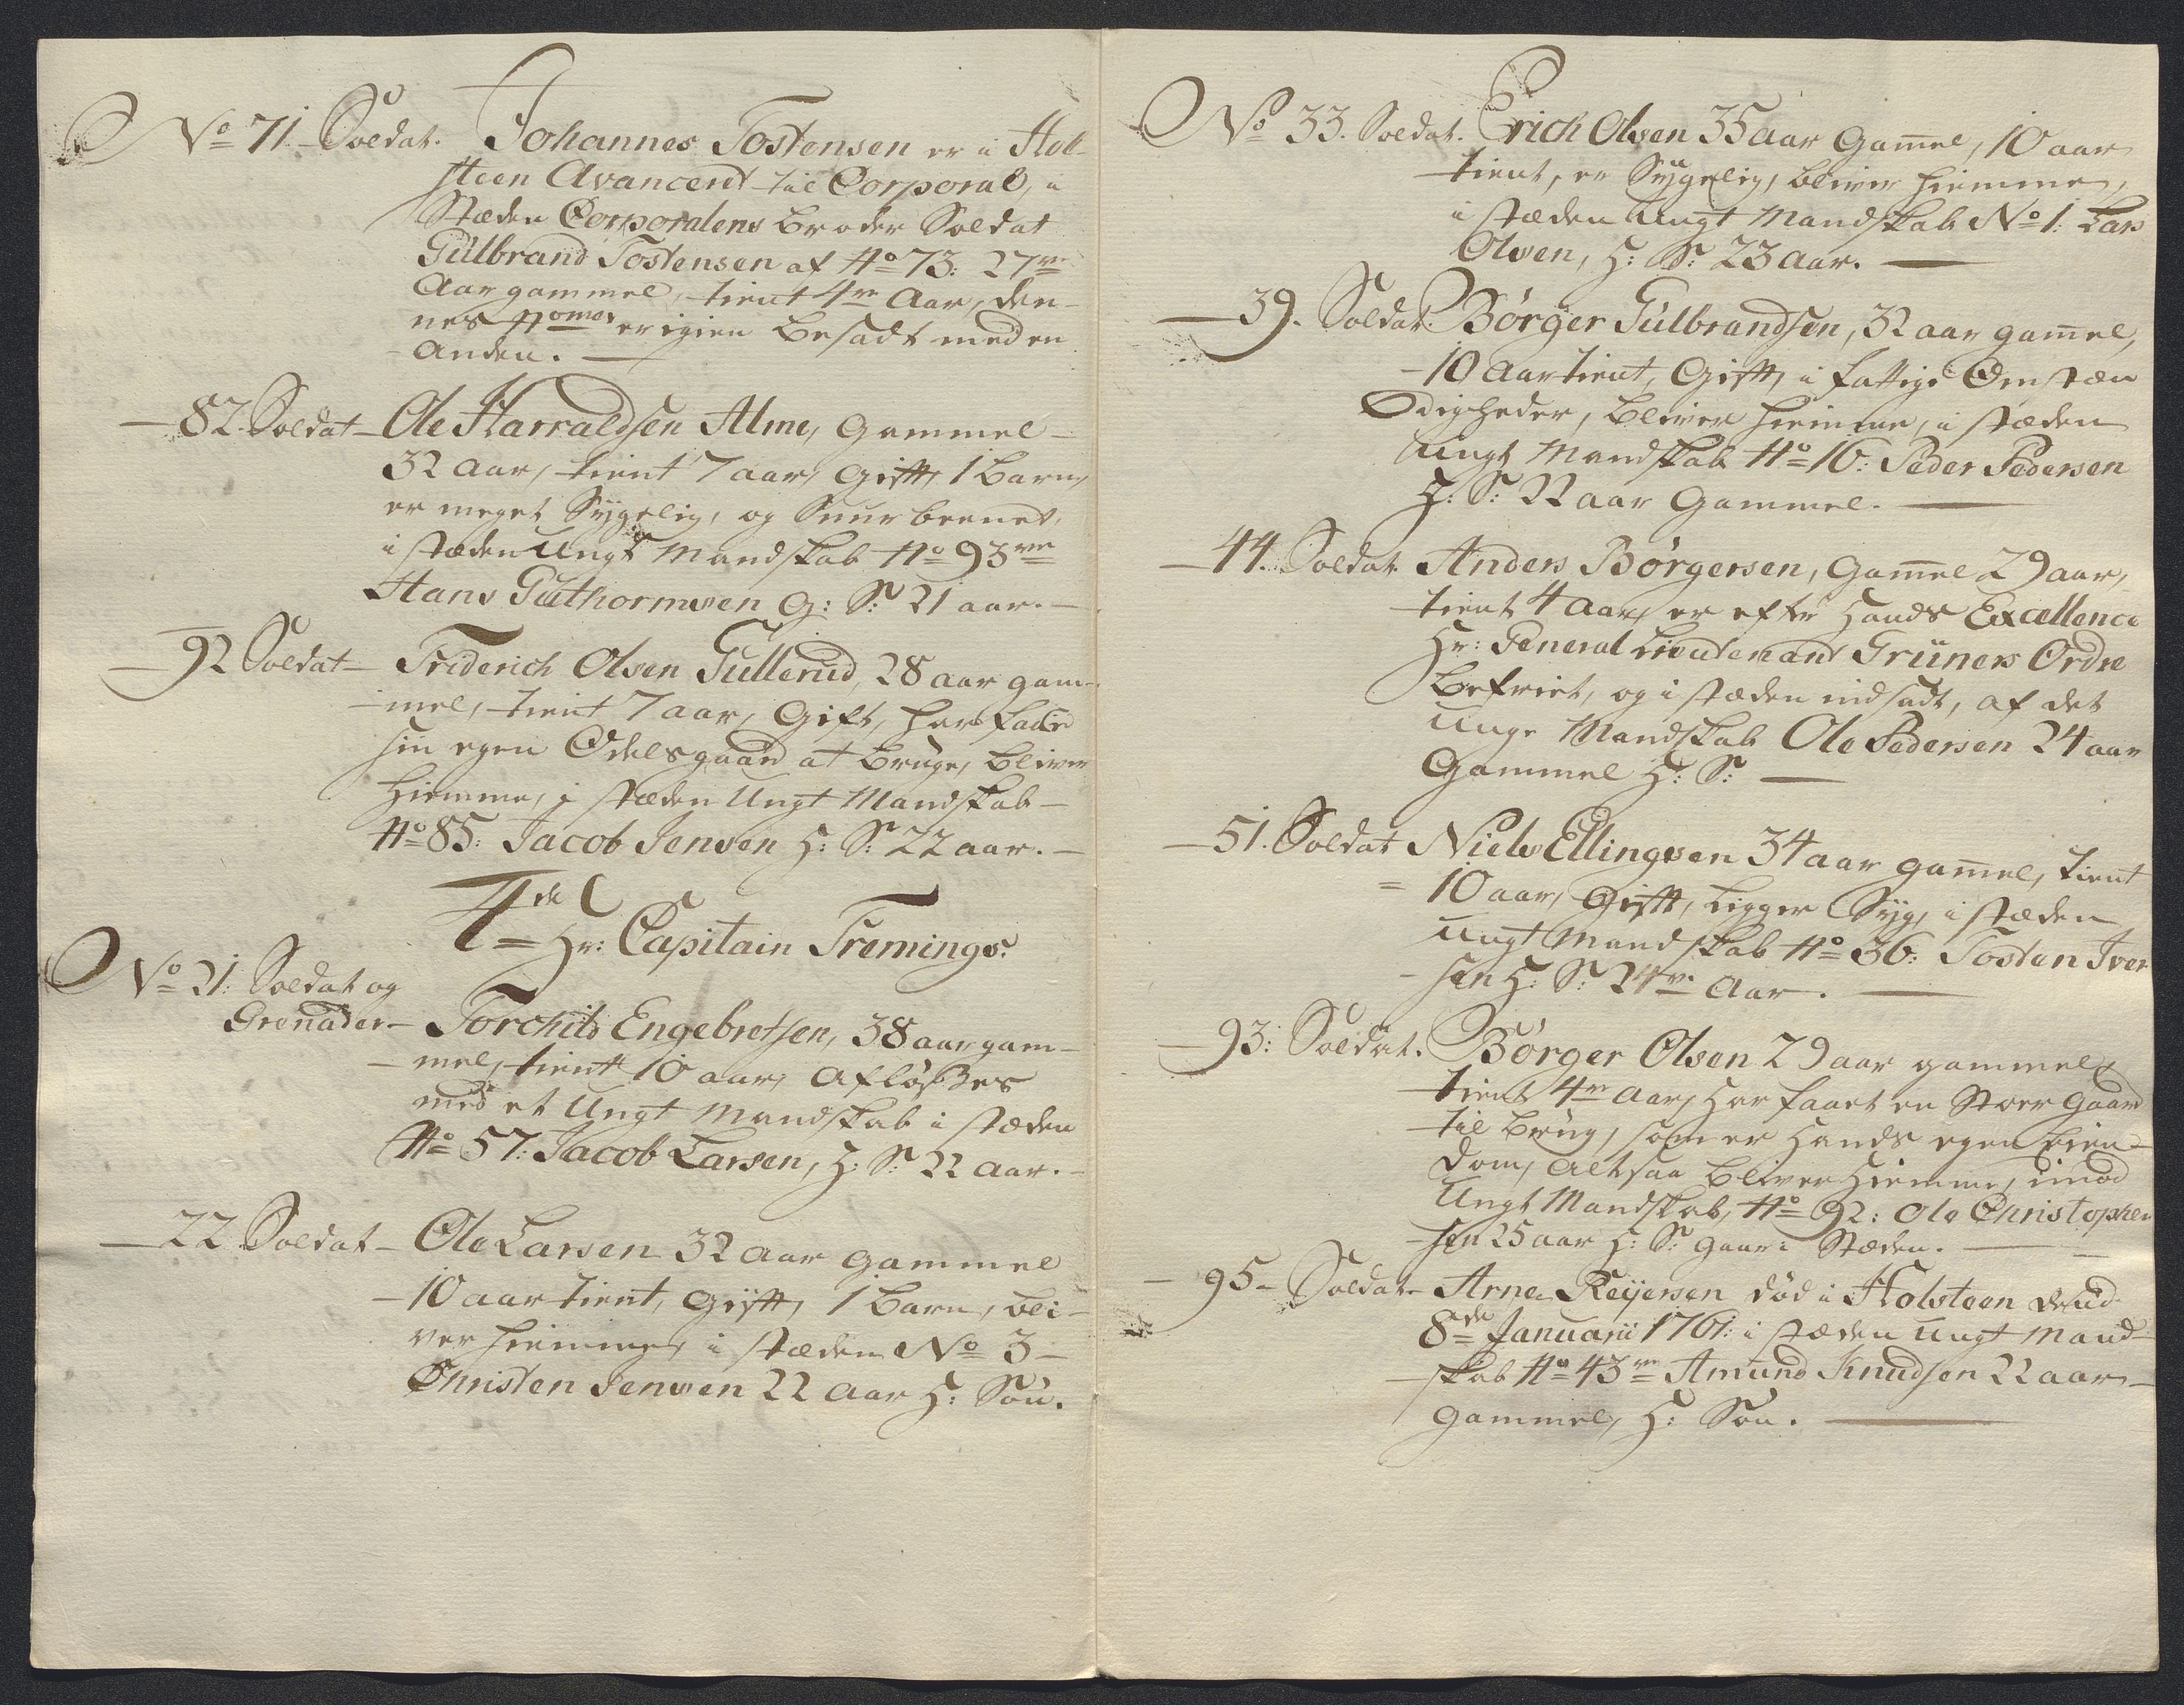 No 71 Soldat. Johannes Tostensen er i Hol-
steen Avancerit til Corporal, i
Stæden Corporalens Broder Soldat
Gulbrand Tostensen af No 73: 27ve
Aar gammel, tient 4re Aar, den-
nes Nomer er igien besadt med en
Anden.
82. Soldat Ole Harraldsen Alme, gammel
32 aar, tient 7 aar, gift, 1 barn,
er meget Sygelig, og Snur beenet,
i stæden Ungt Mandskab No 93re
Hans Guthormsen G: S: 21 aar.
92 Soldat Friderich Olsen Gullerud, 28 aar gam-
mel, tient 7 aar, Gift, har faaet
sin egen Odelsgaard at bruge, bliver
hiemme, i stæden Ungt Mandskab
No 85: Jacob Jensen H: S: 22 aar.
4de Hr: Capitain Tremings:
No 21: Soldat og
Grenader Torchild Engebretsen, 38 aar gam-
mel, tient 10 aar, afløsses
med et Ungt Mandskab i stæden
No 57: Jacob Larsen, H: S: 22 aar.
22. Soldat Ole Larsen 32 aar gammel
10 aar tient, gift, 1 barn, bli-
ver hiemme, i stæden No 3
Christen Jensen 22 aar H: Søn.
No 33. Soldat. Erich Olsen 35 aar gam̅el, 10 aar
tient, er Sygelig, bliver hiemme,
i stæden Ungt Mandskab No 1: Lars
Olsen, H: S: 23 aar.
39. Soldat. Børger Gulbrandsen, 32 aar gam̅el,
10 aar tient, Gift, i fattige Omstæn
digheder, bliver hiemme, i stæden
ungt Mandskab No 16: Peder Pedersen
H: S: 22 aar gammel.
44. Soldat Anders Børgersen, gam̅el 29 aar,
tient 4 aar, er efter Hands Excellence
Hr: General Lieutenant Grüners Ordre
befriet, og i stæden indsadt, af det
unge Mandskab Ole Pedersen 24 aar
gammel H: S:
51. Soldat Niels Ellingsen 34 aar gam̅el, tient
10 aar, gift, ligger Syg, i stæden
ungt Mandskab No 36: Tosten Iver
sen H: S: 24re Aar.
93: Soldat. Børger Olsen 29 aar gammel,
tient 4re aar, har faaet en Stoer Gaard
til brug, som er Hands egen Eien-
dom, altsaa bliver hiemme, imod
Ungt Mandskab, No 92: Ole Christopher
sen 25 aar H: S: gaar i Stæden.
95 Soldat Arne Reyersen død i Holsteen
8de Januarii 1761: i stæden ungt Mand-
skab No 43re Amund Knudsen 22 aar
gammel, H: Søn.